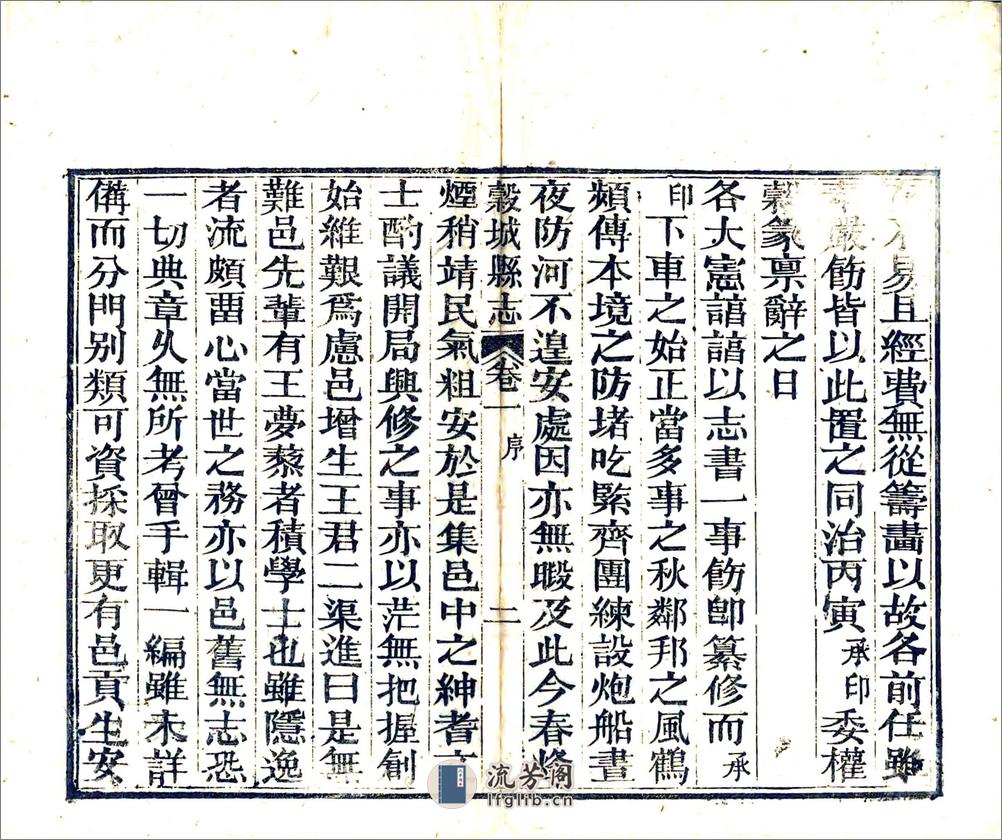 不易且經費無從籌畫以故各前任雖
嚴飭皆以此置之同治丙寅承印委權
穀篆禀辭之日
各大憲諳諳以志書一事飭卽纂修而承
印下車之始正當多事之秋鄰邦之風鶴
頻傳本境之防堵吃緊齊團練設炮船晝
夜防河不遑安處因亦無暇及此今春烽
穀城縣志 卷一 序 二
煙稍靖民氣粗安於是集邑中之紳耆
士酌議開局興修之事亦以茫無把握創
始維艱爲慮邑增生王君二渠進曰是無
難邑先輩有王夢藜者積學士也雖隱逸
者流頗畱心當世之務亦以邑舊無志恐
一切典章乆無所考曾手輯一編雖未詳
備而分門别類可資採取更有邑貢生安
流芳阁
lfglib.cn